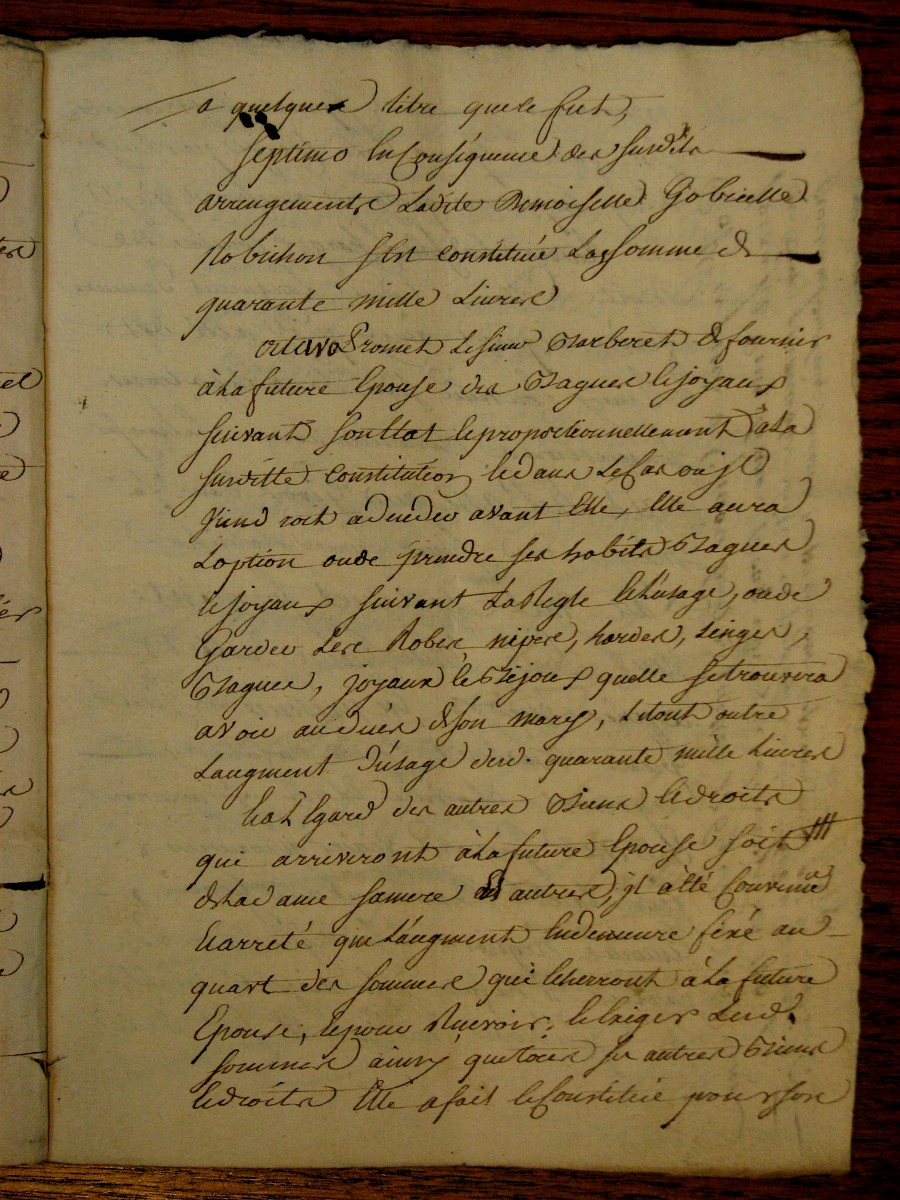 a quelque titre que ce fut,
septimo En Consequence des susdits
arrengements Ladite Demoiselle Gabrielle
Robichon S'est constituée La somme de
quarante mille Livres
octavo Promet Le sieur Barberet de fournir
à La future Epouse des Bagues et joyaux
suivant son Etat et proportionnellement à La
susditte constitution, et dans Le Cas ou jl
viendroit a deceder avant Elle, Elle aura
L'option ou de prendre ses habits Bagues
et joyaux suivant La Regle et L'usage, ou de
Garder Les Robes nipes, hardes, Linges,
Bagues, joyaux et Bijoux quelle se trouvera
avoir au déces de son mary, Le tout outre
L'augment d'usage desd. quarante mille Livres
Et a L'Egard des autres Biens et droits
qui arriveront à La future Epouse soit
de Lad dame sa mere ou autres, jl a été Convenu
Et arreté que L'augment En demeure fixé au
quart des sommes qui Echerront à La future
Epouse, et pour Recevoir, et Exiger Lesd.
sommes ainsy que tous ses autres Biens
et droits Elle a fait et Constitué pour son